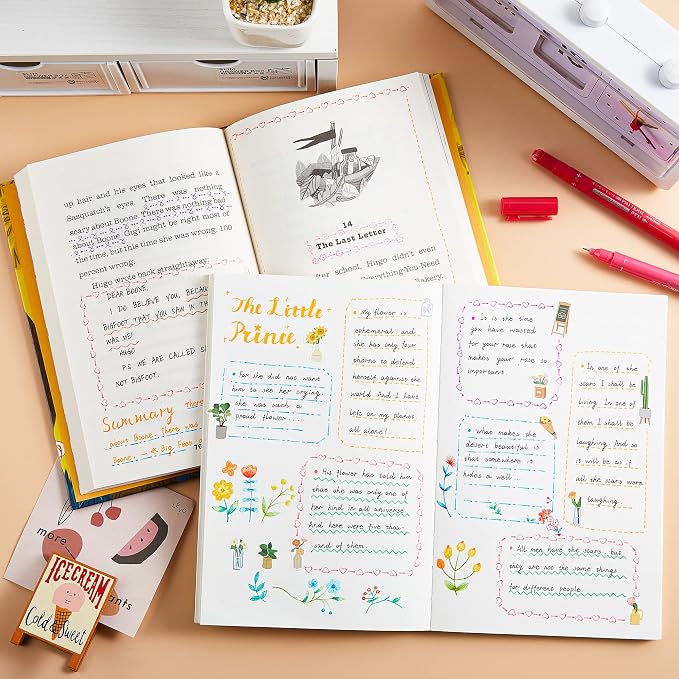 up hair and his eyes that looked like a
Sasquatch's eyes. There was nothing
scary about Boone. There was nothing bad
about Boone. Gigi might be right most of
the time, but this time she was wrong. 100
percent wrong.
Hugo wrote back straightaway:
DEAR BOONE,
I DO BELIEVE YOU, BECAUSE
BIGFOOT THAT YOU SAW IN TH
WAS ME!
HUGO
P.S. WE ARE CALLED SA
NOT BIGFOOT.
Summary There
about Boone. There was
Boone. Big Feet
76
14
The Last Letter
fter school, Hugo didn't even
Everything-You-Need
Bakery.
The Little
Prince
For she did not want
him to see her crying.
she was such a
proud flower
My flower is
ephemeral. and
she has only four
thorns to defend
herself against the
world. And I have
left on my planet.
all alone!
His flower has told him
that she was only one of
her kind in all universe.
And here were five thou-
sand of them.
It is the time
you have wasted
for your rose that
makes your rose so
important
What makes the
desert beautiful is
that somewhere is
hides a well
In one of the
stars I shall be
living. In one of
them I shall be
laughing. And so
is will be as if
all the stars were
laughing.
All men have the stars, but
they are not the same things
for different people
more
ants
ICECREAM
Cold & Sweet